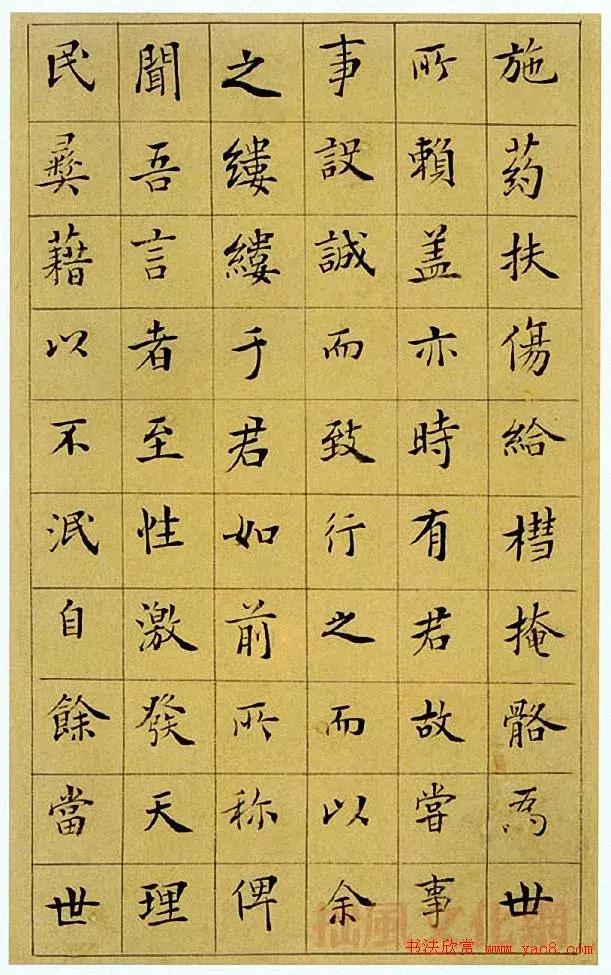 施药扶傷給槥掩骼為世
所賴盖亦時有君故嘗事
事設誠而致行之而以余
之縷縷于君如前所称俾
聞吾言者至性激發天理
民彝藉以不泯自餘當世
书法欣赏 www.yac8.com